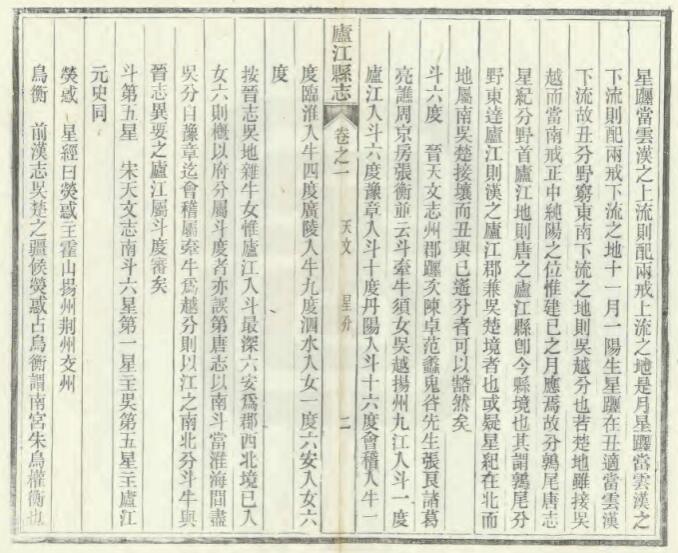 星躔當雲漢之上流則配兩戒上流之地是月星躔當雲漢之
下流則配兩戒下流之地十一月一陽生星躔在丑適當雲漢
下流故丑分野窮東南下流之地則吳越分也若楚地雖接吳
越而當南戒正中純陽之位惟建巳之月應焉故分鶉尾唐志
星紀分野首廬江地則唐之廬江縣卽今縣境也其謂鶉尾分
野東達廬江則漢之廬江郡兼吳楚境者也或疑星紀在北而
地屬南吳楚接壤而丑與巳遙分者可以豁然矣
斗六度　晉天文志州郡躔次陳卓范蠡鬼谷先生張良諸葛
亮譙周京房張衡並云斗牽牛須女吳越揚州九江入斗一度
廬江入斗六度豫章入斗十度丹陽入斗十六度會稽入牛一
廬江縣志
卷之一
天文
星分
二
度臨淮入牛四度廣陵入牛九度泗水入女一度六安入女六
度
按晉志吳地雜牛女惟廬江入斗最深六安爲郡西北境已入
女六則概以府分屬斗度者亦誤第唐志以南斗當淮海間盡
吳分自豫章迄會稽屬牽牛爲越分則以江之南北分斗牛與
晉志異要之廬江屬斗度審矣
斗第五星　宋天文志南斗六星第一星主吳第五星主廬江
元史同
熒惑　星經曰熒惑主霍山揚州荆州交州
鳥衡　前漢志吳楚之疆候熒惑占鳥衡謂南宮朱鳥權衡也